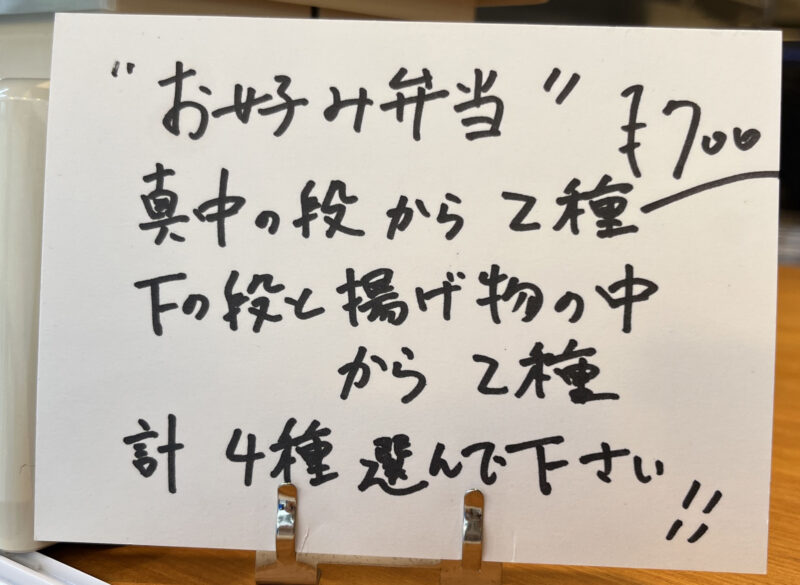 "お好み弁当" ¥700
真中の段から2種
下の段と揚げ物の中
から2種
計4種選んで下さい!!